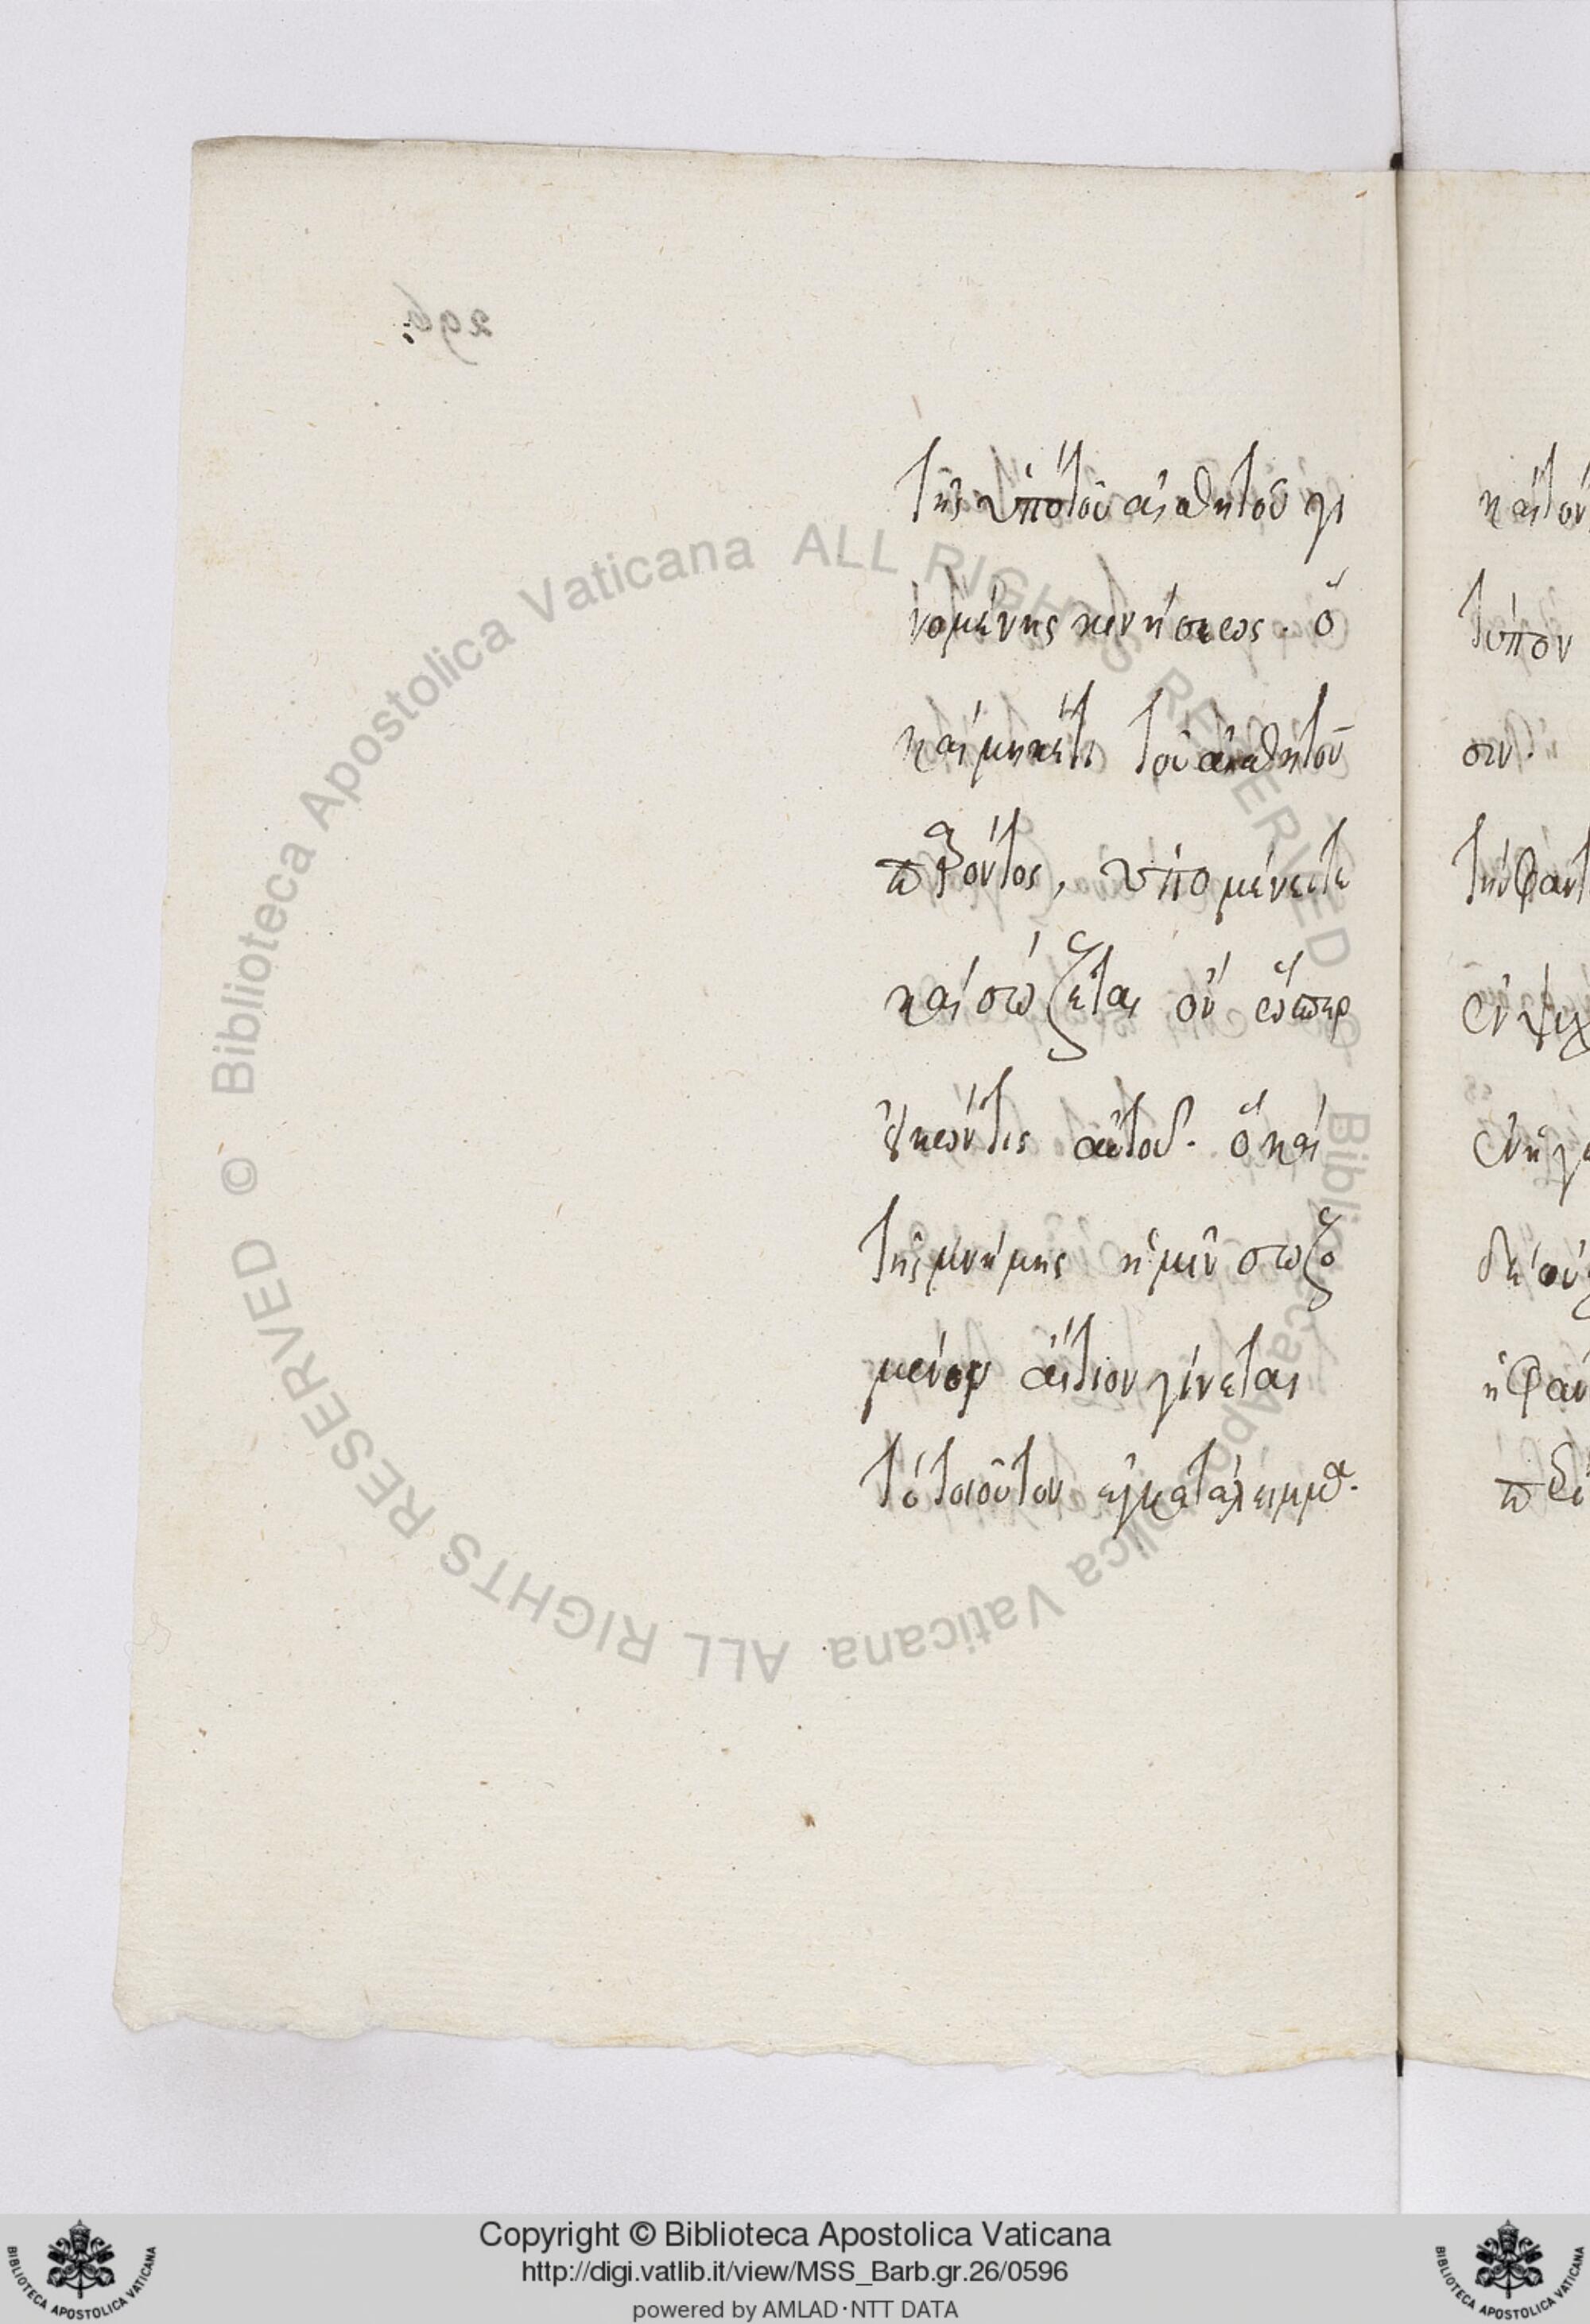 296
τῆς ὑπὸ τοῦ αἰσθητοῦ γι
νομένης κινήσεως. ὃ
καὶ μηκέτι τοῦ αἰσθητοῦ
παρόντος, ὑπομένει τε
καὶ σώζεται ὂν ὥσπερ
εἰκών τις αὐτοῦ. ὃ καὶ
τῆς μνήμης ἡμῖν σωζό
μενον αἴτιον γίνεται
τὸ τοιοῦτον ἐγκατάλειμμα.
καὶ τὸν
τύπον
σιν.
ἐν ψυχ
δὴ οὐχ
ἡ φαν
© Biblioteca Apostolica Vaticana ALL RIGHTS RESERVED © Biblioteca Apostolica Vaticana ALL RIGHTS RESERVED
Copyright © Biblioteca Apostolica Vaticana
http://digi.vatlib.it/view/MSS_Barb.gr.26/0596
powered by AMLAD·NTT DATA
BIBLIOTECA APOSTOLICA VATICANA
BIBLIOTECA APOSTOLICA VATICANA